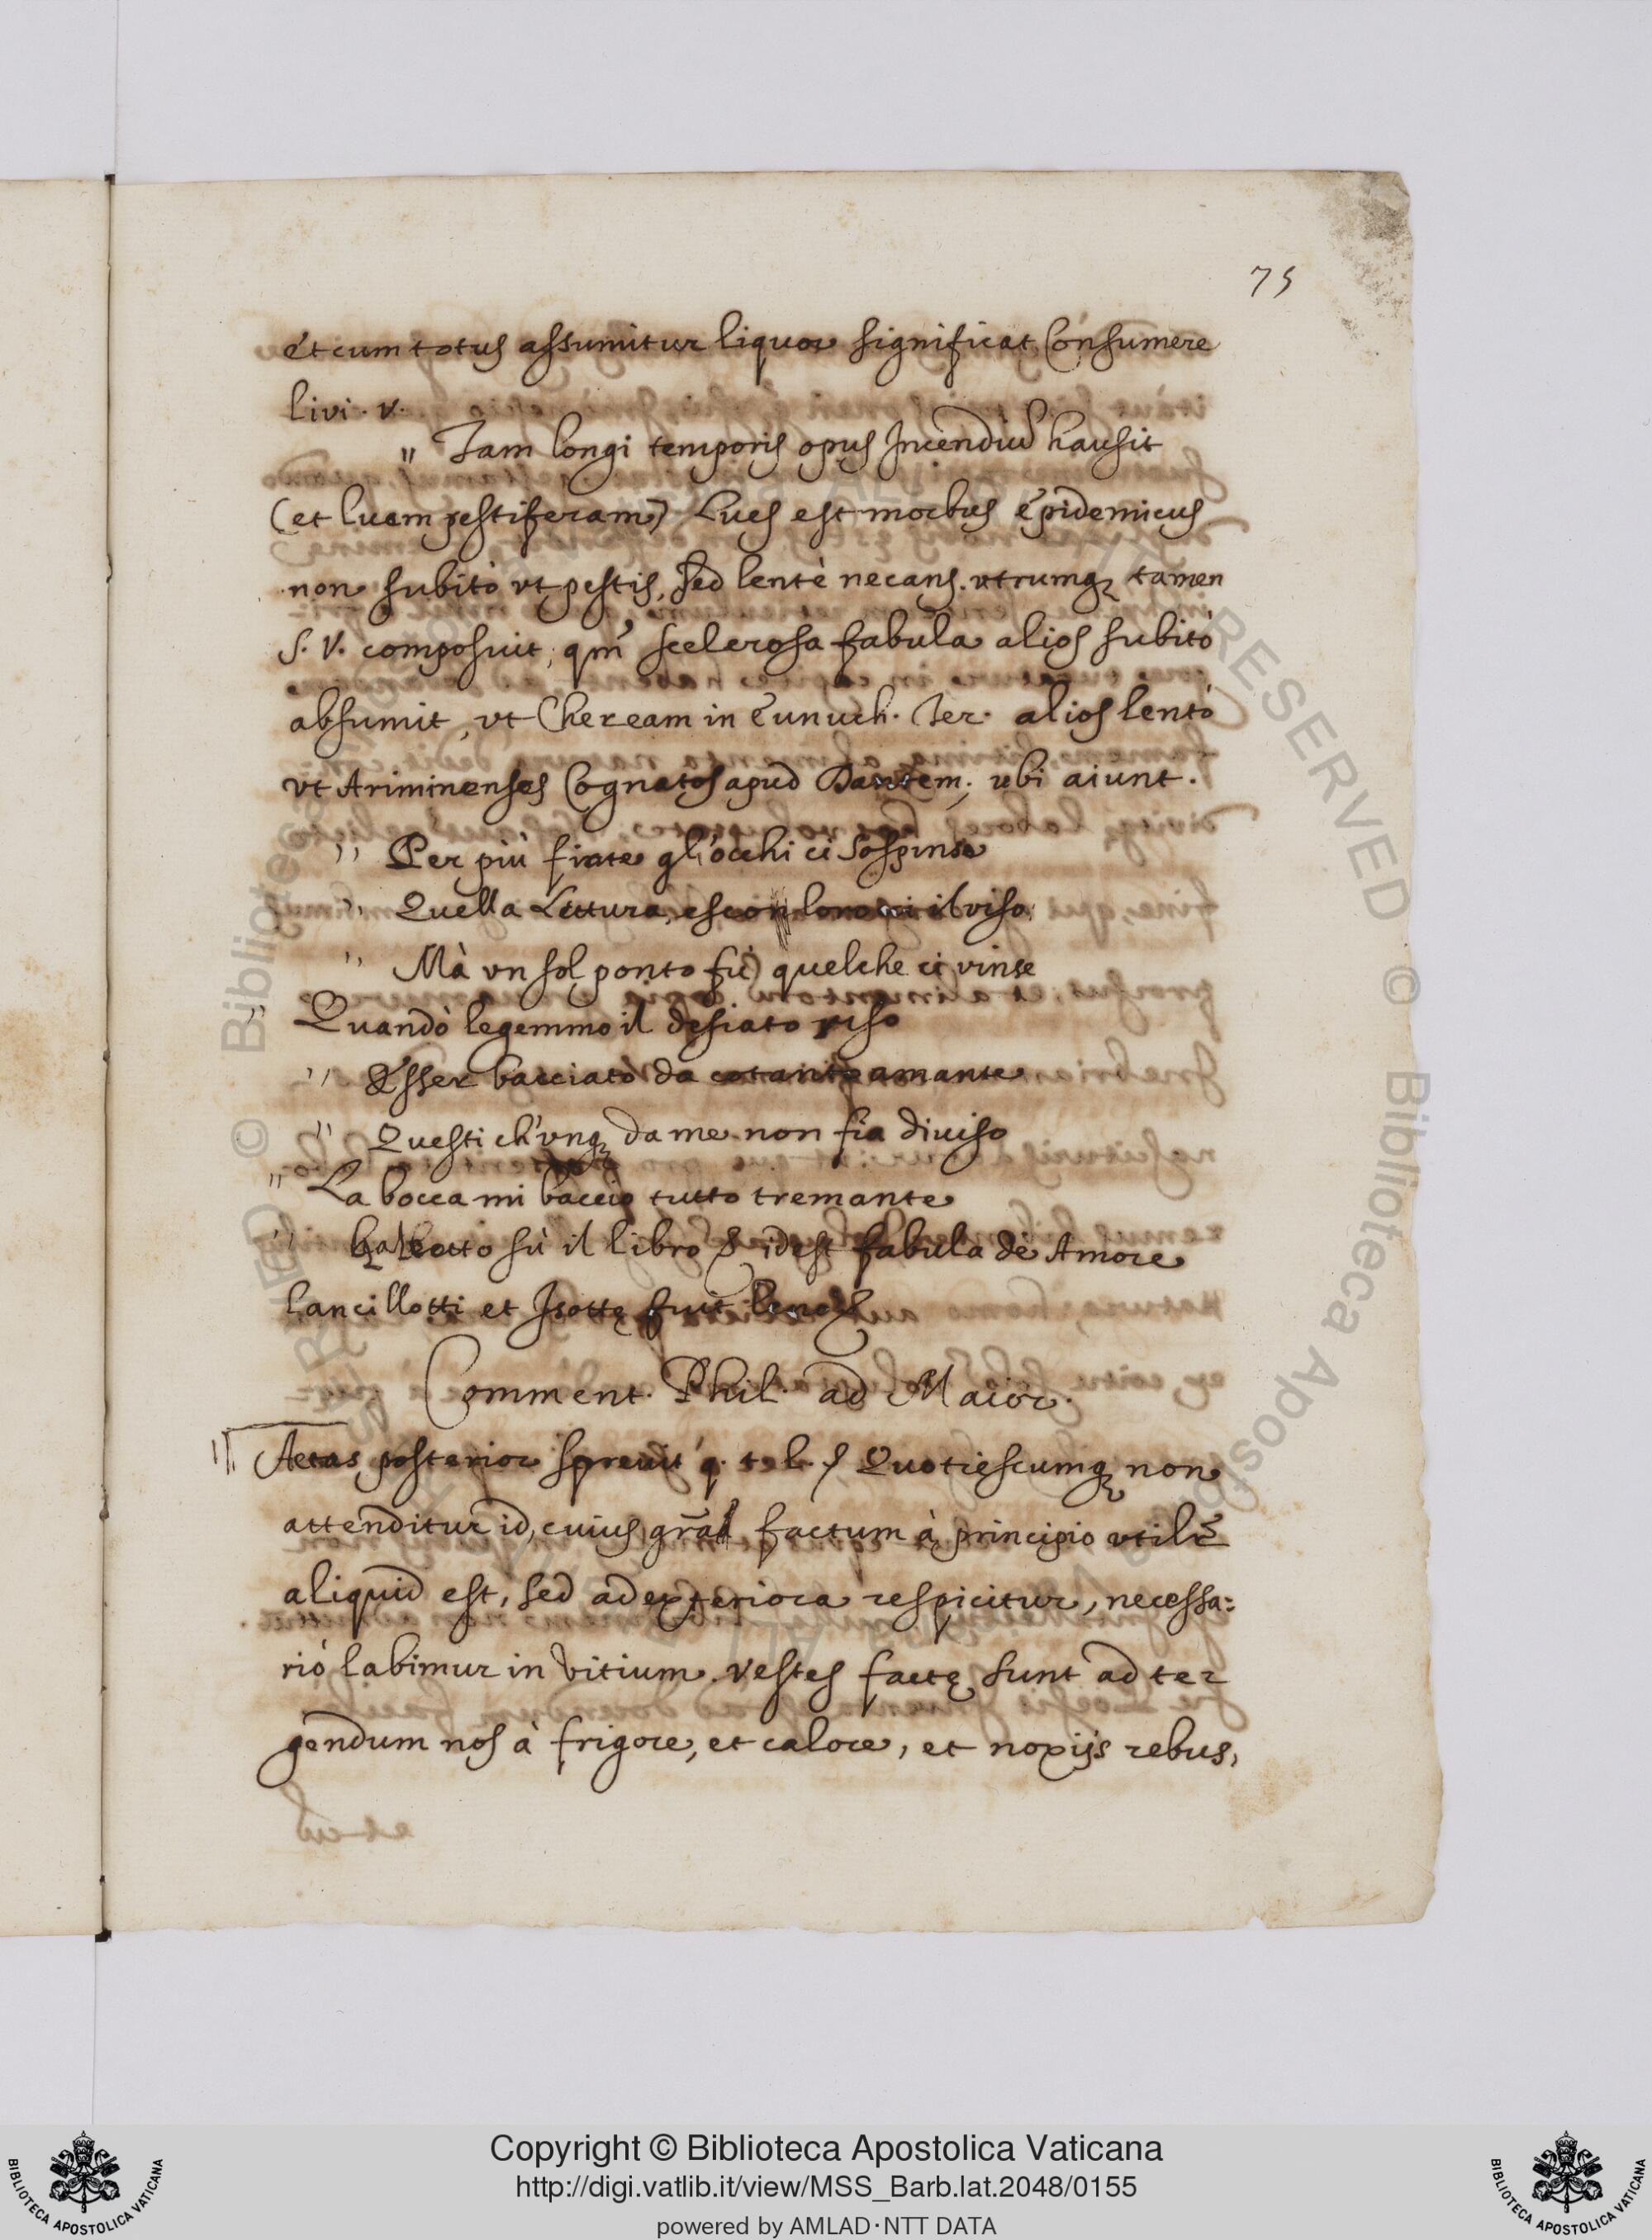 75
et cum totus assumitur liquor significat Consumere
livi. v.
" Iam longi temporis opus Incendiũ hausit
(et luem pestiferam) Lues est morbus epidemicus
non subitò vt pestis, sed lentè necans. vtrumq tamen
S. V. composuit, qm̃ scelerosa fabula alios subitò
absumit, vt Cheream in Eunuch. Ter. alios lentò
vt Ariminenses Cognatos apud Dantem; ubi aiunt.
" Per più fiate gl'occhi ci sospinse
" Quella Lettura, e scolorocci il viso
" Mà vn sol ponto fù quel che ci vinse
" Quandò legemmo il desiato riso
" Esser bacciatò da cotante amante
" Questi ch'vnq da me non fia diuiso
" La bocca mi baccio tutto tremante
" Galeotto fù il libro & idest fabula de Amore
Lancillotti et Isottę fuit leno
Comment. Phil. ad Maior.
Aetas posterior spreuit q. t. l. Quotiescumq non
attenditur id, cuius gr̃a factum à principio vtile
aliquid est, sed ad exteriora respicitur, necessa=
riò labimur in vitium. Vestes factę sunt ad ter
gendum nos à frigore, et calore, et noxijs rebus,
BIBLIOTECA APOSTOLICA VATICANA
Copyright © Biblioteca Apostolica Vaticana
http://digi.vatlib.it/view/MSS_Barb.lat.2048/0155
powered by AMLAD·NTT DATA
BIBLIOTECA APOSTOLICA VATICANA